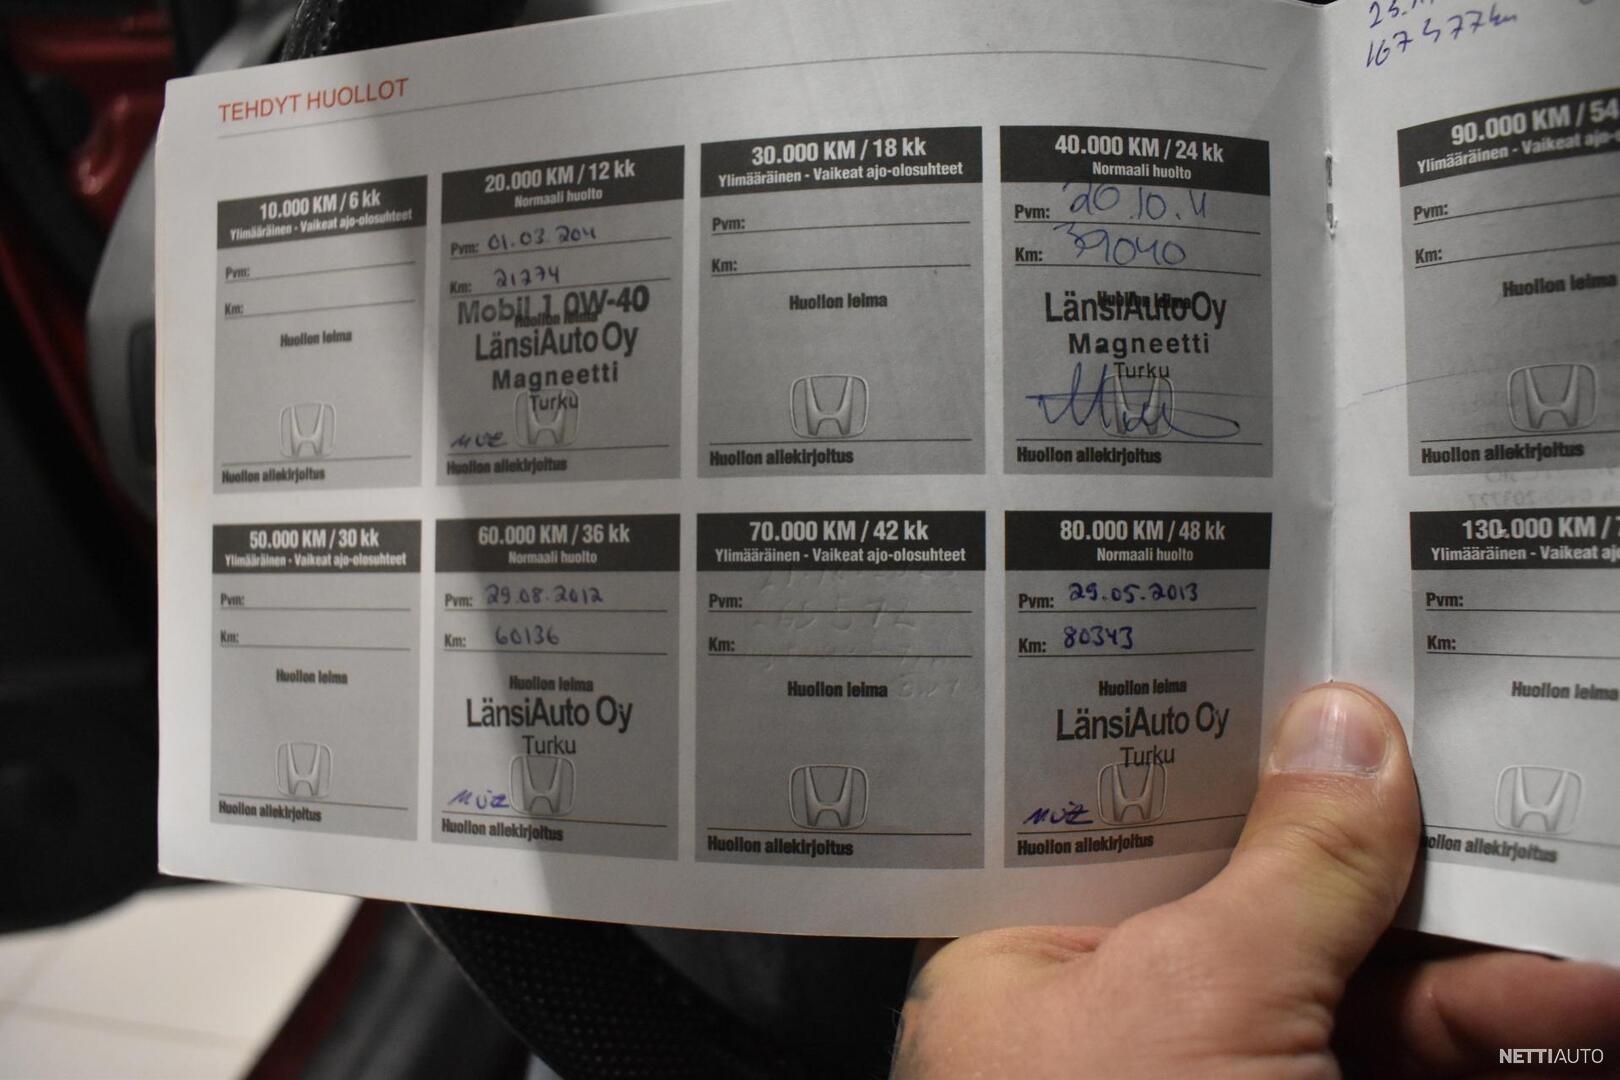 TEHDYT HUOLLOT
10.000 KM / 6 kk
Ylimääräinen - Vaikeat ajo-olosuhteet
Pvm:
Km:
Huollon leima
Huollon allekirjoitus
20.000 KM / 12 kk
Normaali huolto
Pvm: 01.03.2011
Km: 21274
Huollon leima
Mobil 1 0W-40
LänsiAuto Oy
Magneetti
Turku
Huollon allekirjoitus
30.000 KM / 18 kk
Ylimääräinen - Vaikeat ajo-olosuhteet
Pvm:
Km:
Huollon leima
Huollon allekirjoitus
40.000 KM / 24 kk
Normaali huolto
Pvm: 20.10.11
Km: 39040
Huollon leima
LänsiAuto Oy
Magneetti
Turku
Huollon allekirjoitus
50.000 KM / 30 kk
Ylimääräinen - Vaikeat ajo-olosuhteet
Pvm:
Km:
Huollon leima
Huollon allekirjoitus
60.000 KM / 36 kk
Normaali huolto
Pvm: 29.08.2012
Km: 60136
Huollon leima
LänsiAuto Oy
Turku
Huollon allekirjoitus
70.000 KM / 42 kk
Ylimääräinen - Vaikeat ajo-olosuhteet
Pvm:
Km:
Huollon leima
Huollon allekirjoitus
80.000 KM / 48 kk
Normaali huolto
Pvm: 29.05.2013
Km: 80343
Huollon leima
LänsiAuto Oy
Turku
Huollon allekirjoitus
167477km
90.000 KM / 54
Ylimääräinen - Vaikeat ajo-
Pvm:
Km:
Huollon leima
Huollon allekirjoitus
130.000 KM /
Ylimääräinen - Vaikeat ajo
Pvm:
Km:
Huollon leima
allekirjoitus
NETTIAUTO